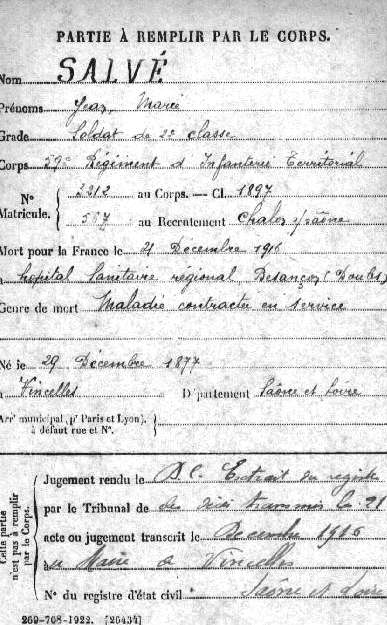 PARTIE À REMPLIR PAR LE CORPS.
Nom SALVÉ
Prénoms Jean Marie
Grade Soldat de 2e classe
Corps 59e Régiment d'Infanterie Territorial
N° Matricule. 2212 au Corps. — Cl. 1897
587 au Recrutement Chalon s/Saône
Mort pour la France le 21 Décembre 1916
à hopital Sanitaire régional, Besançon (Doubs)
Genre de mort Maladie contractée en service
Né le 29 Décembre 1877
à Vincelles Département Saône et Loire
Arr' municipal (p' Paris et Lyon),
à défaut rue et N°.
Cette partie n'est pas à remplir par le Corps.
Jugement rendu le Extrait du registre
par le Tribunal de des décès transmis le 21
acte ou jugement transcrit le Décembre 1916
au Maire de Vincelles
N° du registre d'état civil Saône et Loire
269-708-1922. [26434]